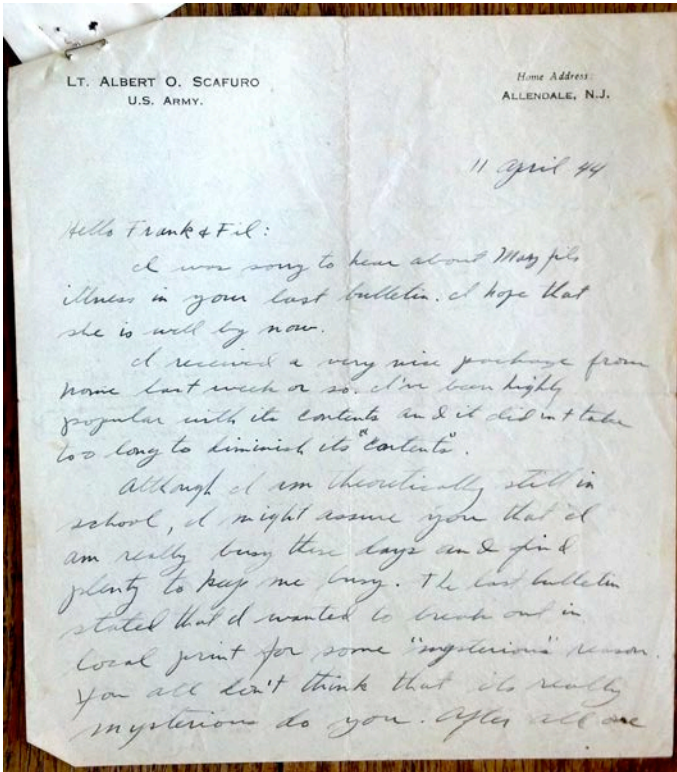 LT. ALBERT O. SCAFURO
U.S. ARMY.
Home Address:
ALLENDALE, N.J.
11 April 44
Hello Frank & Fil:
I was sorry to hear about Mary fils
illness in your last bulletin. I hope that
she is well by now.
I received a very nice package from
home last week or so. I've been highly
popular with its contents and it didn't take
too long to diminish its "contents".
Although I am theoretically still in
school, I might assure you that I
am really busy these days and find
plenty to keep me busy. The last bulletin
stated that I wanted to break out in
local print for some "mysterious" reason.
You all don't think that its really
mysterious do you. After all one